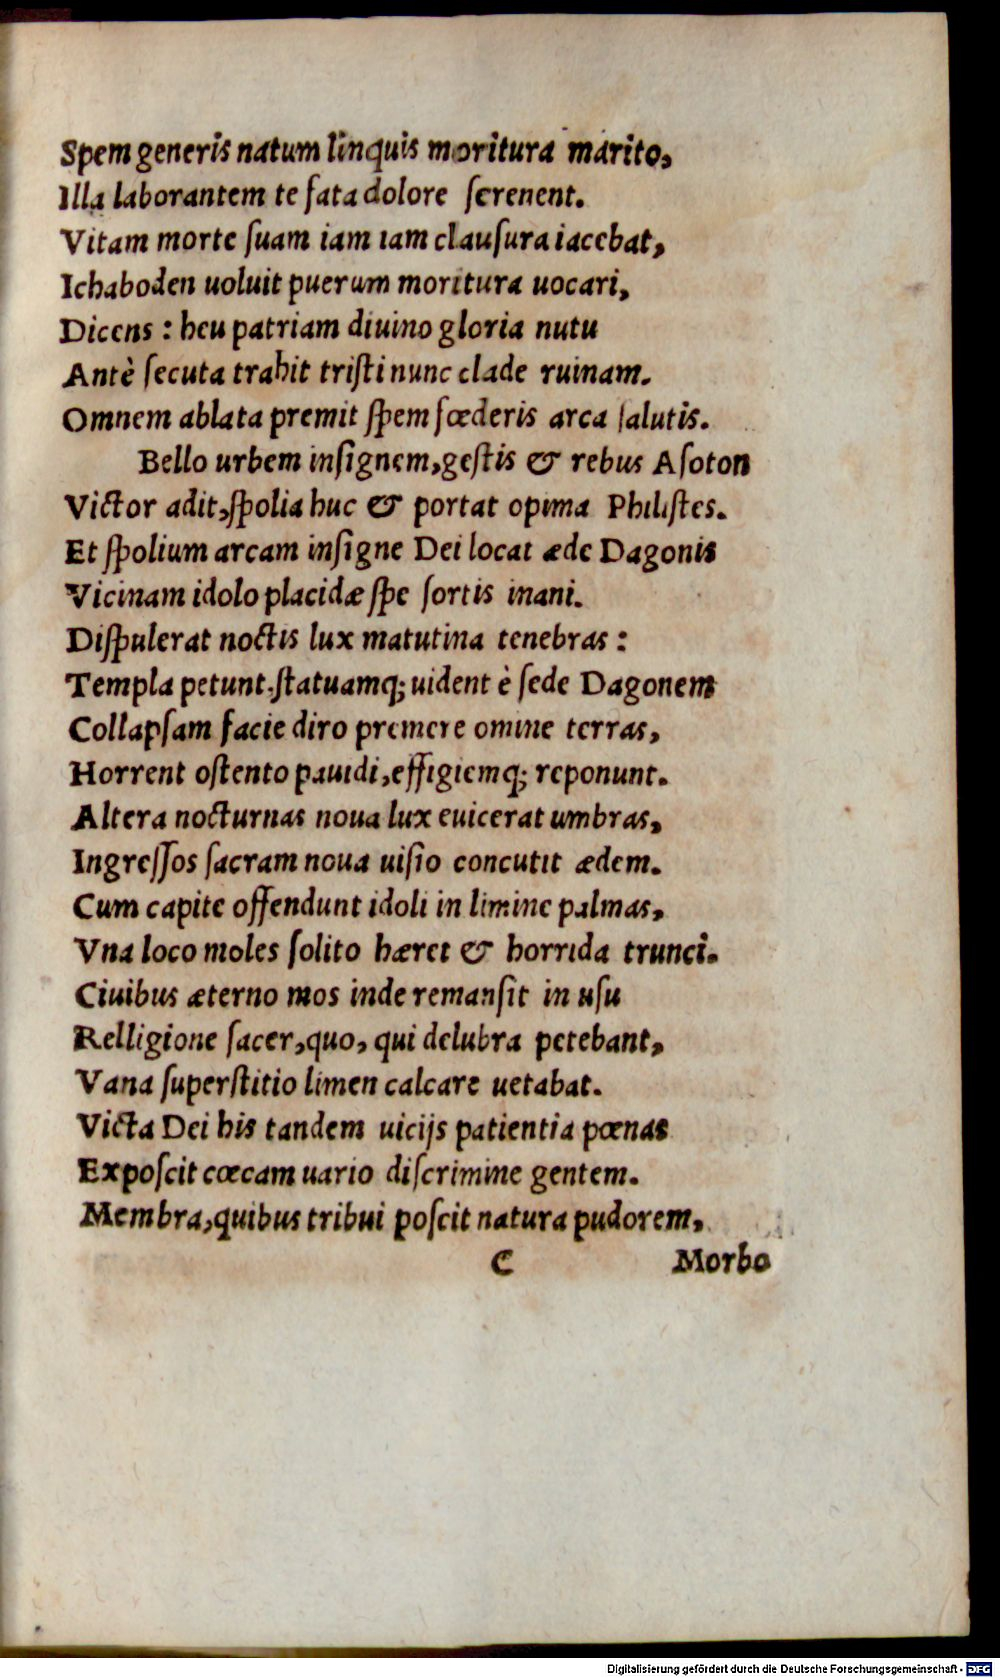 Spem generis natum linquis moritura marito,
Illa laborantem te fata dolore ſerenent.
Vitam morte ſuam iam iam clauſura iacebat,
Ichaboden uoluit puerum moritura uocari,
Dicens : heu patriam diuino gloria nutu
Antè ſecuta trahit triſti nunc clade ruinam.
Omnem ablata premit ſpem fœderis arca ſalutis.
Bello urbem inſignem, geſtis & rebus Aſoton
Victor adit, ſpolia huc & portat opima Philiſtes.
Et ſpolium arcam inſigne Dei locat æde Dagonis
Vicinam idolo placidæ ſpe ſortis inani.
Diſpulerat noctis lux matutina tenebras :
Templa petunt. ſtatuamq; uident è ſede Dagonem
Collapſam facie diro premere omine terras,
Horrent oſtento pauidi, effigiemq; reponunt.
Altera nocturnas noua lux euicerat umbras,
Ingreſſos ſacram noua uiſio concutit ædem.
Cum capite offendunt idoli in limine palmas,
Vna loco moles ſolito hæret & horrida trunci.
Ciuibus æterno mos inde remanſit in uſu
Relligione ſacer, quo, qui delubra petebant,
Vana ſuperſtitio limen calcare uetabat.
Victa Dei his tandem uicijs patientia pœnas
Expoſcit cœcam uario diſcrimine gentem.
Membra, quibus tribui poſcit natura pudorem,
C Morbo
Digitalisierung gefördert durch die Deutsche Forschungsgemeinschaft - DFG